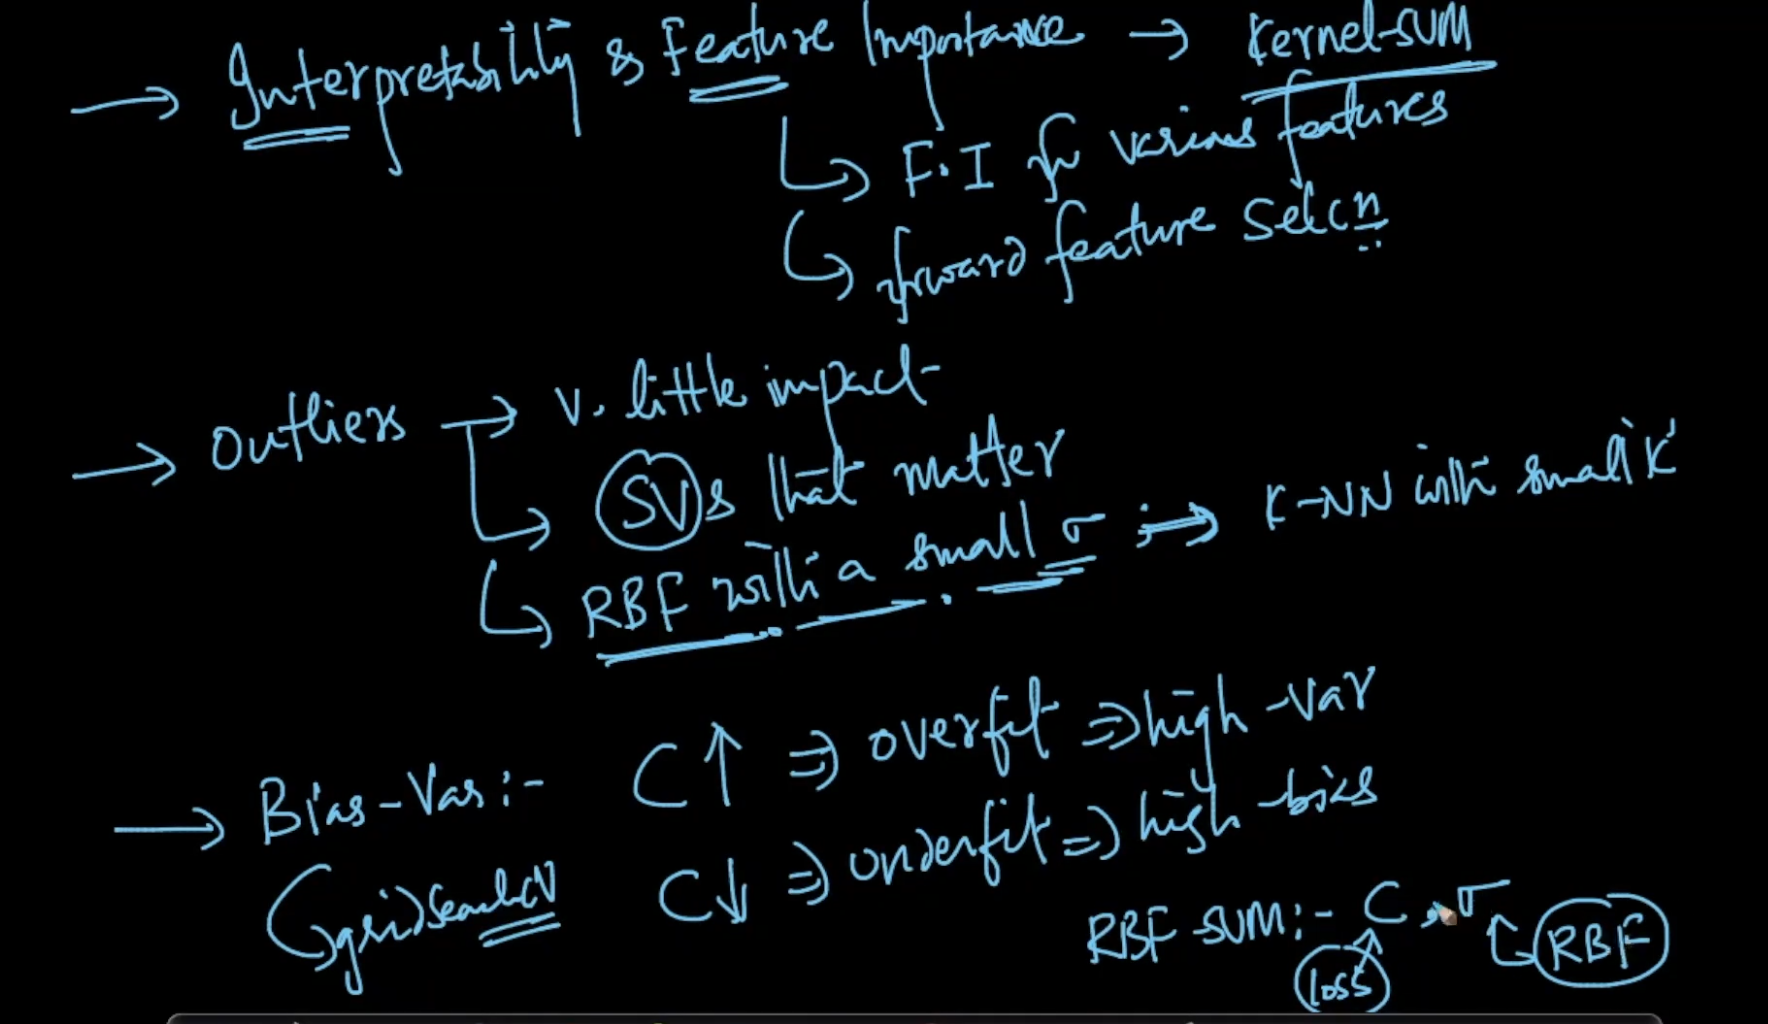 → Interpretability & Feature Importance → Kernel-SVM
↳ F.I for various features
↳ forward feature selcn
→ Outliers → v. little impact
↳ SVs that matter
↳ RBF with a small σ ; → K-NN with small 'K'
→ Bias-Var :- C↑ ⇒ overfit ⇒ high-var
↳ gridSearchCV C↓ ⇒ underfit ⇒ high-bias
RBF-SVM :- C, σ
loss ↳ RBF